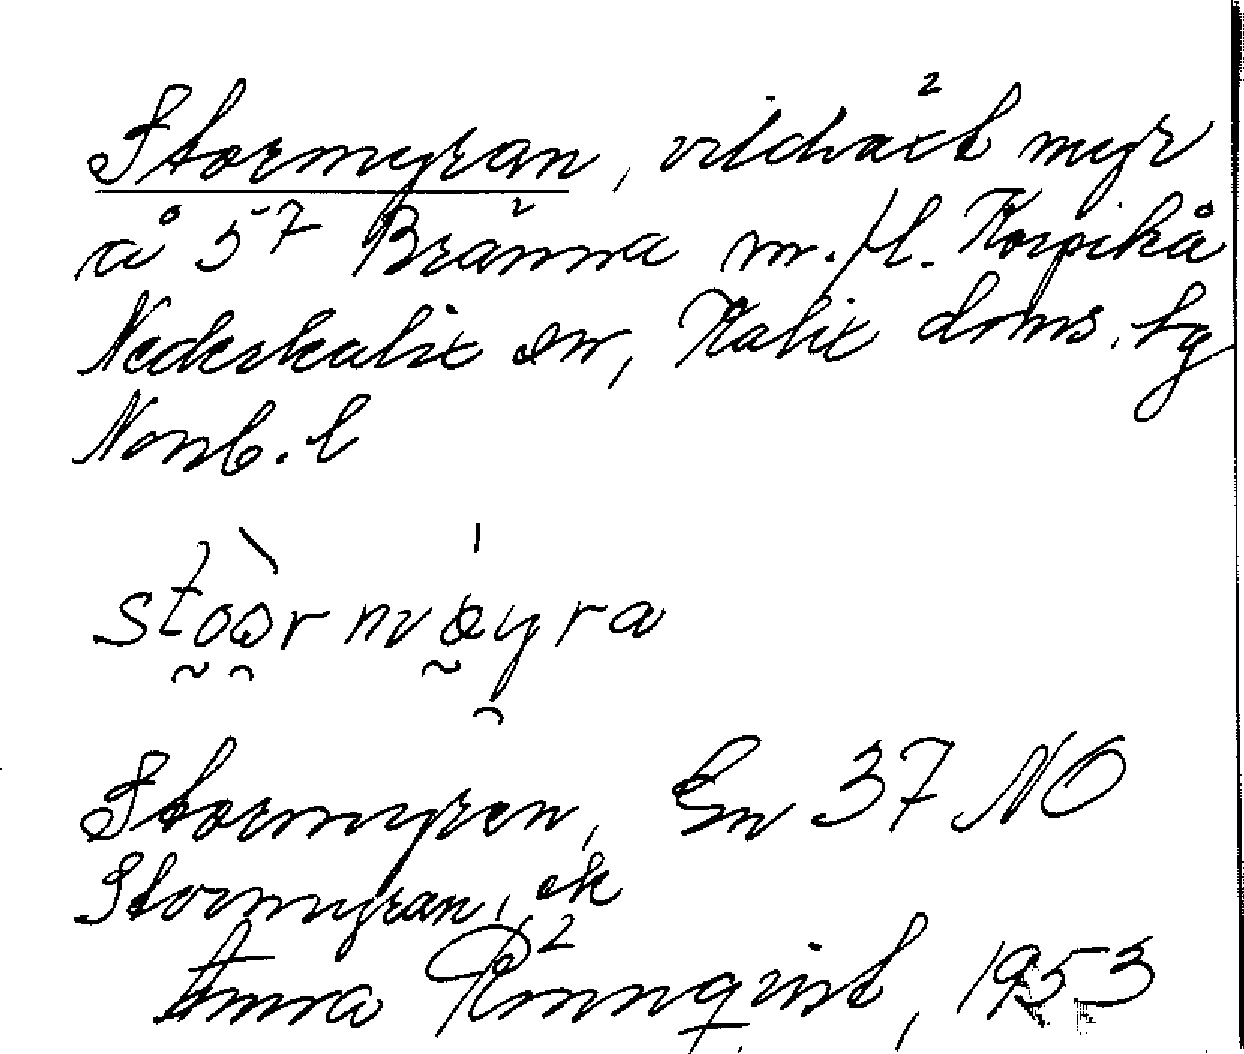 Stormyran, vildväxt myr
å 5⁷ Bränna m. fl. Korpikå
Nederkalix sn, Kalix doms. tg
Norrb. l
stoərmøyra
Stormyren, En 37 NO
Stormyran, ek
Anna Rönnqvist, 1953